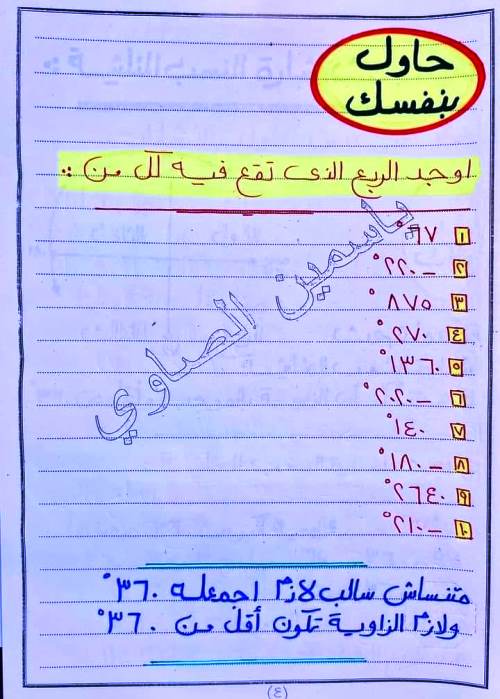 حاول
بنفسك
اوجد الربع الذى تقع فيه كل من :
١ ٦٧°
٢ -٢٢٠°
٣ ٨٧٥°
٤ ٢٧٠°
٥ ١٣٦٠°
٦ -٢٠٢٠°
٧ ١٤٠°
٨ -١٨٠°
٩ ٢٦٤٠°
١٠ -٢١٠°
ياسمين الصاوي
متنساش سالب لازم اجمعله ٣٦٠°
ولازم الزاوية تكون أقل من ٣٦٠°
(٤)